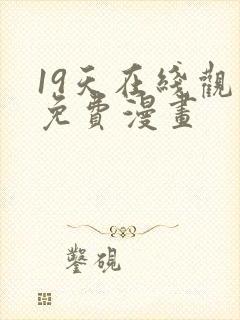 19天在綫觀
免費漫畫
鑿硯